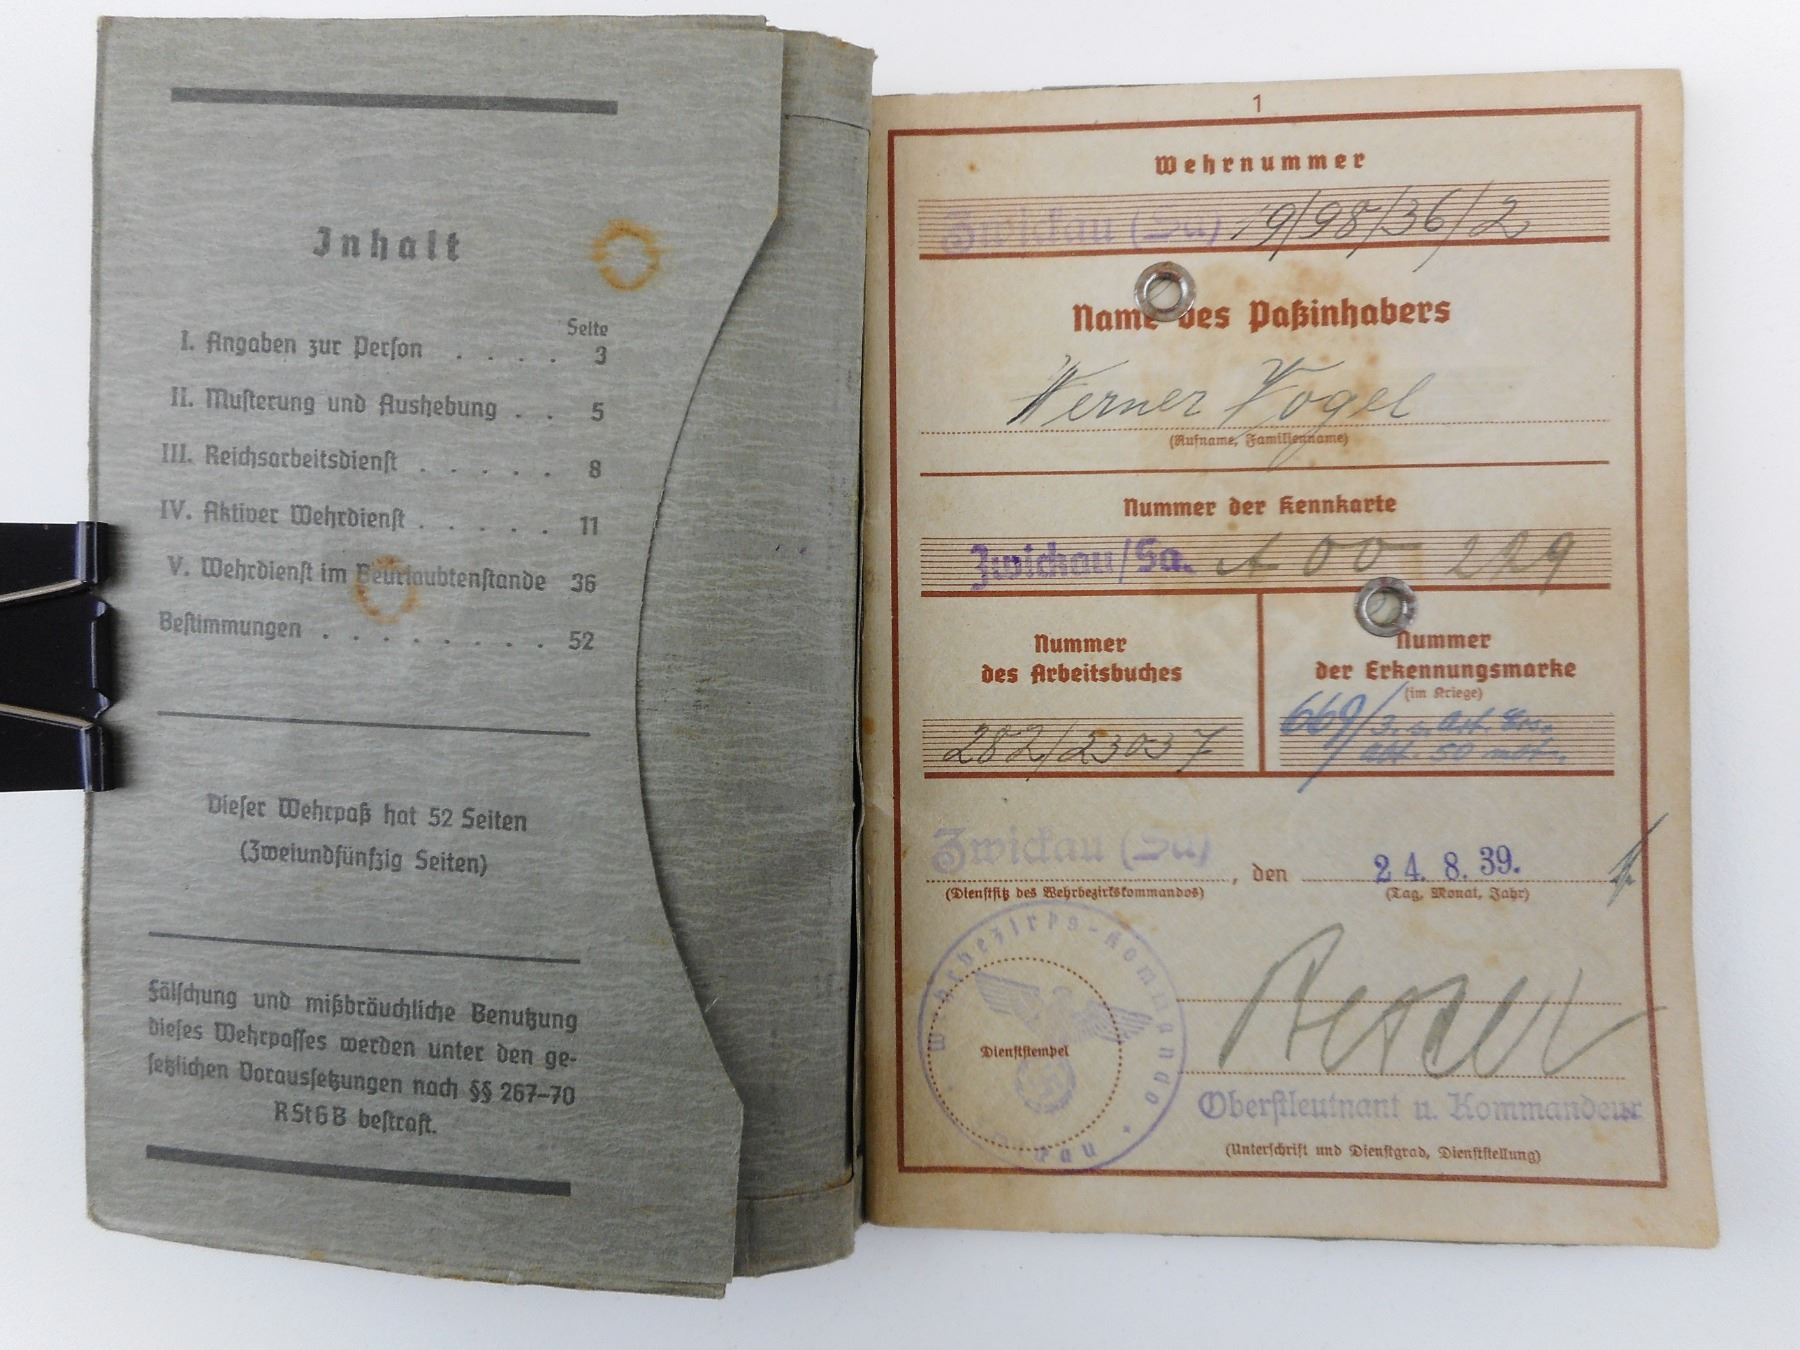 Inhalt
Seite
I. Angaben zur Person . . . . 3
II. Musterung und Aushebung . . 5
III. Reichsarbeitsdienst . . . . . 8
IV. Aktiver Wehrdienst . . . . . 11
V. Wehrdienst im Beurlaubtenstande 36
Bestimmungen . . . . . . . . 52
Dieser Wehrpaß hat 52 Seiten
(Zweiundfünfzig Seiten)
Fälschung und mißbräuchliche Benutzung
dieses Wehrpasses werden unter den ge-
setzlichen Voraussetzungen nach §§ 267–70
RStGB bestraft.
1
Wehrnummer
Zwickau (Sa) 19/98/36/2
Name des Paßinhabers
Werner Vogel
(Rufname, Familienname)
Nummer der Kennkarte
Zwickau/Sa. A 00 229
Nummer
des Arbeitsbuches
282/23037
Nummer
der Erkennungsmarke
(im Kriege)
669/3. s. Art. Ers.
Abt. 50 mot.
Zwickau (Sa), den 24. 8. 39.
(Dienstsitz des Wehrbezirkskommandos) (Tag, Monat, Jahr)
Wehrbezirks-Kommando
Dienststempel
Oberstleutnant u. Kommandeur
(Unterschrift und Dienstgrad, Dienststellung)